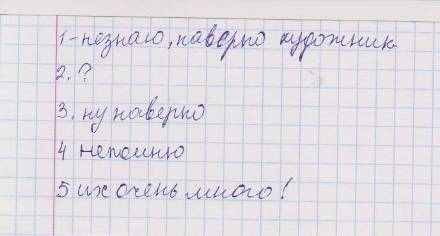 1-незнаю, наверно художник
2.?
3. ну наверно
4 непомню
5 их очень много!